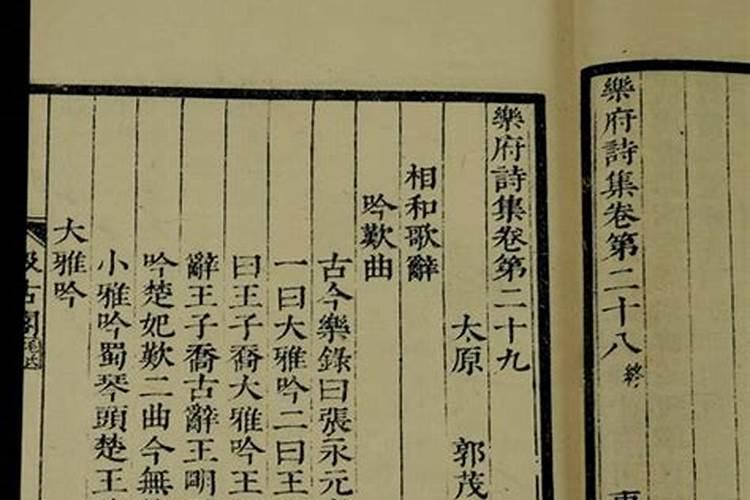 樂府詩集卷第二十八 終
樂府詩集卷第二十九
太原 郭茂
相和歌辭
吟歎曲
古今樂錄曰張永元
一曰大雅吟二曰王
曰王子喬大雅吟王
辭王子喬古辭王明
吟楚妃歎二曲今無
小雅吟蜀琴頭楚王
大雅吟
汲古閣